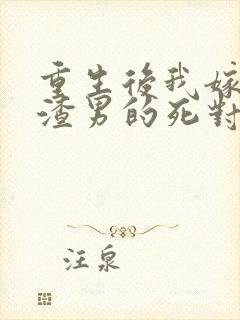 重生後我嫁
渣男的死對
汪泉